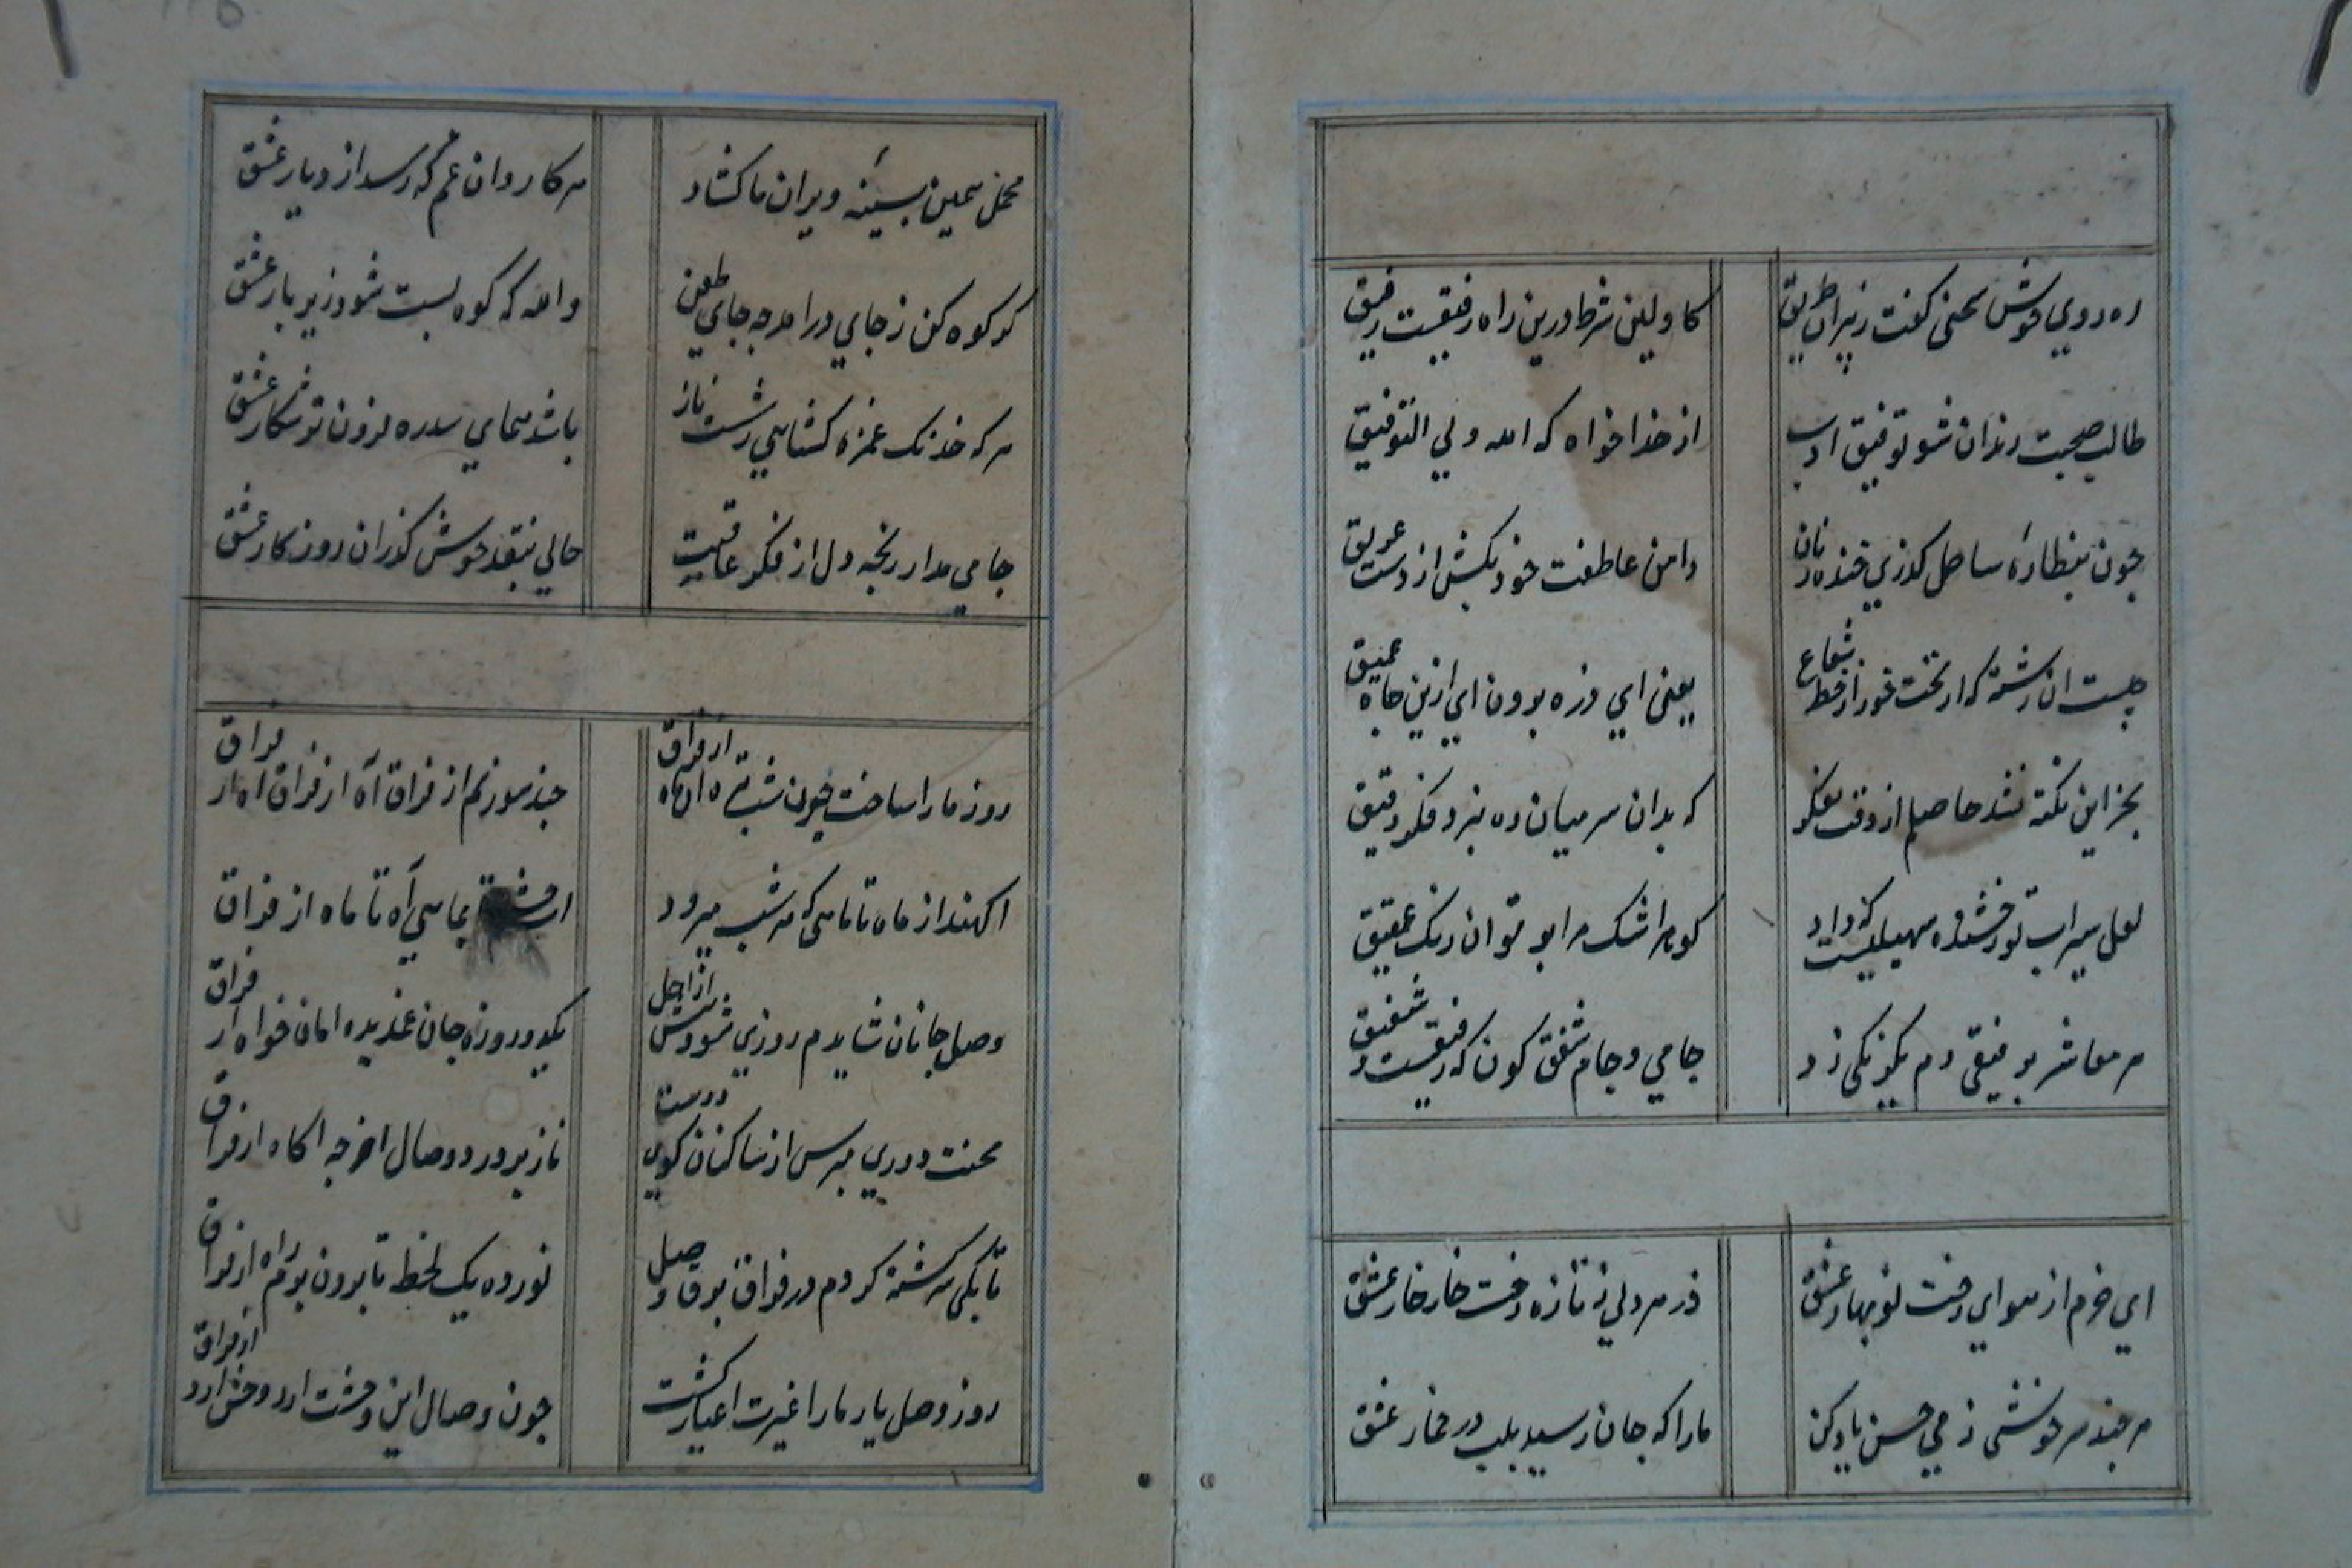 ره روي خوش سخنى كفت زپيران طريق
كاولين شرط درين راه رفيقست رفيق
طالب صحبت رندان شو توفيق ادب
از خدا خواه كه الله ولي التوفيق
چون بنظاره ساحل كذري خنده زنان
دامن عاطفت خود مكش از دست عريق
چيست ان رشته كه اويخت خور از خط شعاع
يعنى اي ذره برون اي ازين چاه عميق
بجز اين نكته نشد حاصلم از وقت تفكر
كه بدان سر ميان ره نبرد فكر دقيق
لعل سيراب تو رخشنده سهيليست كه داد
كوهر اشك مرا بر تو ان رنك عقيق
هر معاشر برفيقى دم يكرنكى زد
جامي و جام شفق كون كه رفيقست و شفيق
اي خرم از هواي رخت نوبهار عشق
در هر دلي ز تازه رخت خار خار عشق
هر چند سرخوشى ز مي حسن ياد كن
ما را كه جان رسيد بلب در خمار عشق
محمل همين بسينه ويران ما كشاد
هر كاروان غم كه رسد از ديار عشق
كر كوه كن ز جاي درامد چه جاي طعن
والله كه كوه پست شود زير بار عشق
هر كه خدنك غمزه كشايي ز شست ناز
باشد هماي سدره نزون تو شكار عشق
جامي مدار رنجه دل از فكر عاقبت
حالي بنقد خوش كذران روزكار عشق
روز ما را ساخت چون شب تيره ان ماه از فراق
چند سوزم از فراق آه از فراق اه از فراق
اكهند از ماه تا ماهي كه هر شب ميرود
بماهي آه تا ماه از فراق
وصل جانان شايدم روزي شود پيش از اجل
يكدو روزه جان غمديده امان خواه از فراق
محنت دوري مپرس از ساكنان كوي دوست
ناز پرورد وصال اخر چه اكاه از فراق
تا بكى سركشته كردم در فراق بر قا وصل
نور ده يك لحظه تا برون برم راه از فراق
روز وصل يار ما را غيرت اغيار كشت
چون وصال اين وحشت ارد وحش ارد از فراق